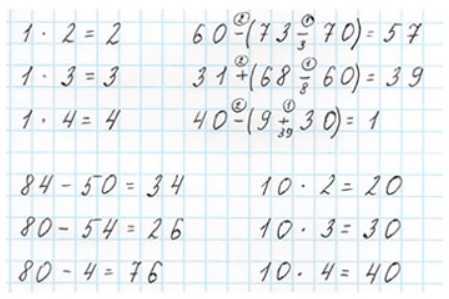 1 · 2 = 2
1 · 3 = 3
1 · 4 = 4
60 - (73 - 70) = 57
31 + (68 - 60) = 39
40 - (9 + 30) = 1
84 - 50 = 34
80 - 54 = 26
80 - 4 = 76
10 · 2 = 20
10 · 3 = 30
10 · 4 = 40